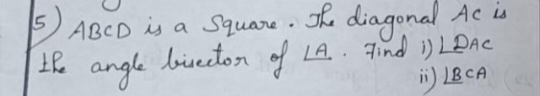 5) ABCD is a Square. The diagonal AC is
the angle bisector of ∠A. Find i) ∠DAC
ii) ∠BCA